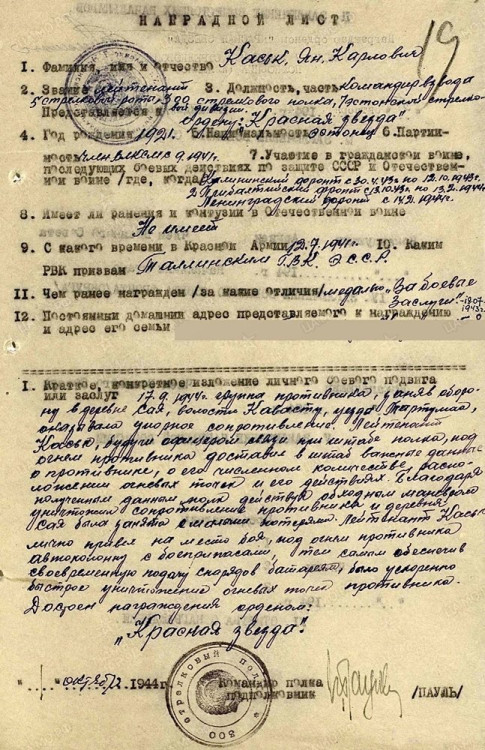 НАГРАДНОЙ ЛИСТ
19
1. Фамилия, имя и отчество Каськ, Ян Карлович
2. Звание лейтенант 3. Должность, часть командир взвода
5 стрелковой роты 300 стрелкового полка, 7 эстонской стрелко-
Представляется к вой дивизии
ордену: "Красная звезда"
4. Год рождения 1921. 5. Национальность эстонец 6. Партий-
ность член ВЛКСМ с 9.1941г. 7. Участие в гражданской войне,
последующих боевых действиях по защите СССР и Отечествен-
ной войне /где, когда/ Калининский фронт с 30.4.43г. по 12.10.1943г.
2 Прибалтийский фронт с 13.10.43г. по 13.2.1944г.
Ленинградский фронт с 14.2.1944г.
8. Имеет ли ранения и контузии в Отечественной войне
Не имеет
9. С какого времени в Красной Армии 12.7.1941г. 10. Каким
РВК призван Таллинским ГВК ЭССР.
11. Чем ранее награжден /за какие отличия/ медалью "За боевые
заслуги"
12. Постоянный домашний адрес представляемого к награждению
и адрес его семьи
1. Краткое, конкретное изложение личного боевого подвига
или заслуг 17.9.1944г. группа противника, заняв оборо-
ну в деревне Сая, волости Кавасту, уезда Тартумаа,
оказывала упорное сопротивление. Лейтенант
Каськ, будучи офицером связи при штабе полка, под
огнем противника доставил в штаб важные данные
о противнике, о его численном количестве, распо-
ложении огневых точек и его действиях. Благодаря
полученным данным полк действуя обходным маневром
уничтожил сопротивление противника и деревня
Сая была занята с малыми потерями. Лейтенант Каськ
лично привел на место боя, под огнем противника
автоколонну с боеприпасами, тем самым обеспечив
своевременную подачу снарядов батареям, было ускорено
быстрое уничтожение огневых точек противника.
Достоин награждения орденом:
"Красная звезда".
"1" октября 1944г.
Командир полка
подполковник /ПАУЛЬ/
стрелковый полк
300